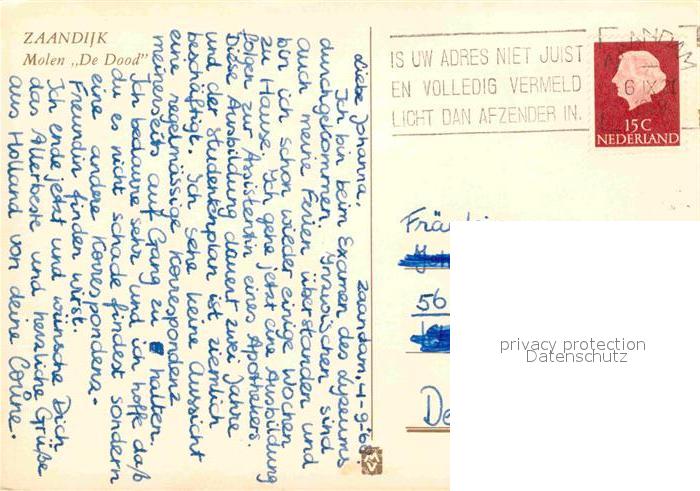 ZAANDIJK
Molen „De Dood”
IS UW ADRES NIET JUIST
EN VOLLEDIG VERMELD
LICHT DAN AFZENDER IN.
15 C
NEDERLAND
Zaandam, 4-9-'6
Liebe Johanna,
Ich bin beim Examen des Lyzeums
durchgekommen. Inzwischen sind
auch meine Ferien überstanden und
bin ich schon wieder einige Wochen
zu Hause. Ich gehe jetzt eine Ausbildung
folgen zur Assistentin eines Apothekers.
Diese Ausbildung dauert zwei Jahre
und der Studenkenplan ist ziemlich
beschäftigt. Ich sehe keine Aussicht
eine regelmässige Korrespondenz
meinerseits auf Gang zu halten.
Ich bedaure sehr und ich hoffe daß
du es nicht schade findest sondern
eine andere Korrespondenz-
Freundin finden wirst.
Ich ende jetzt und wünsche Dich
das Allerbeste und herzliche Grüße
aus Holland von deine Corine.
Fräulein
56
De
privacy protection
Datenschutz